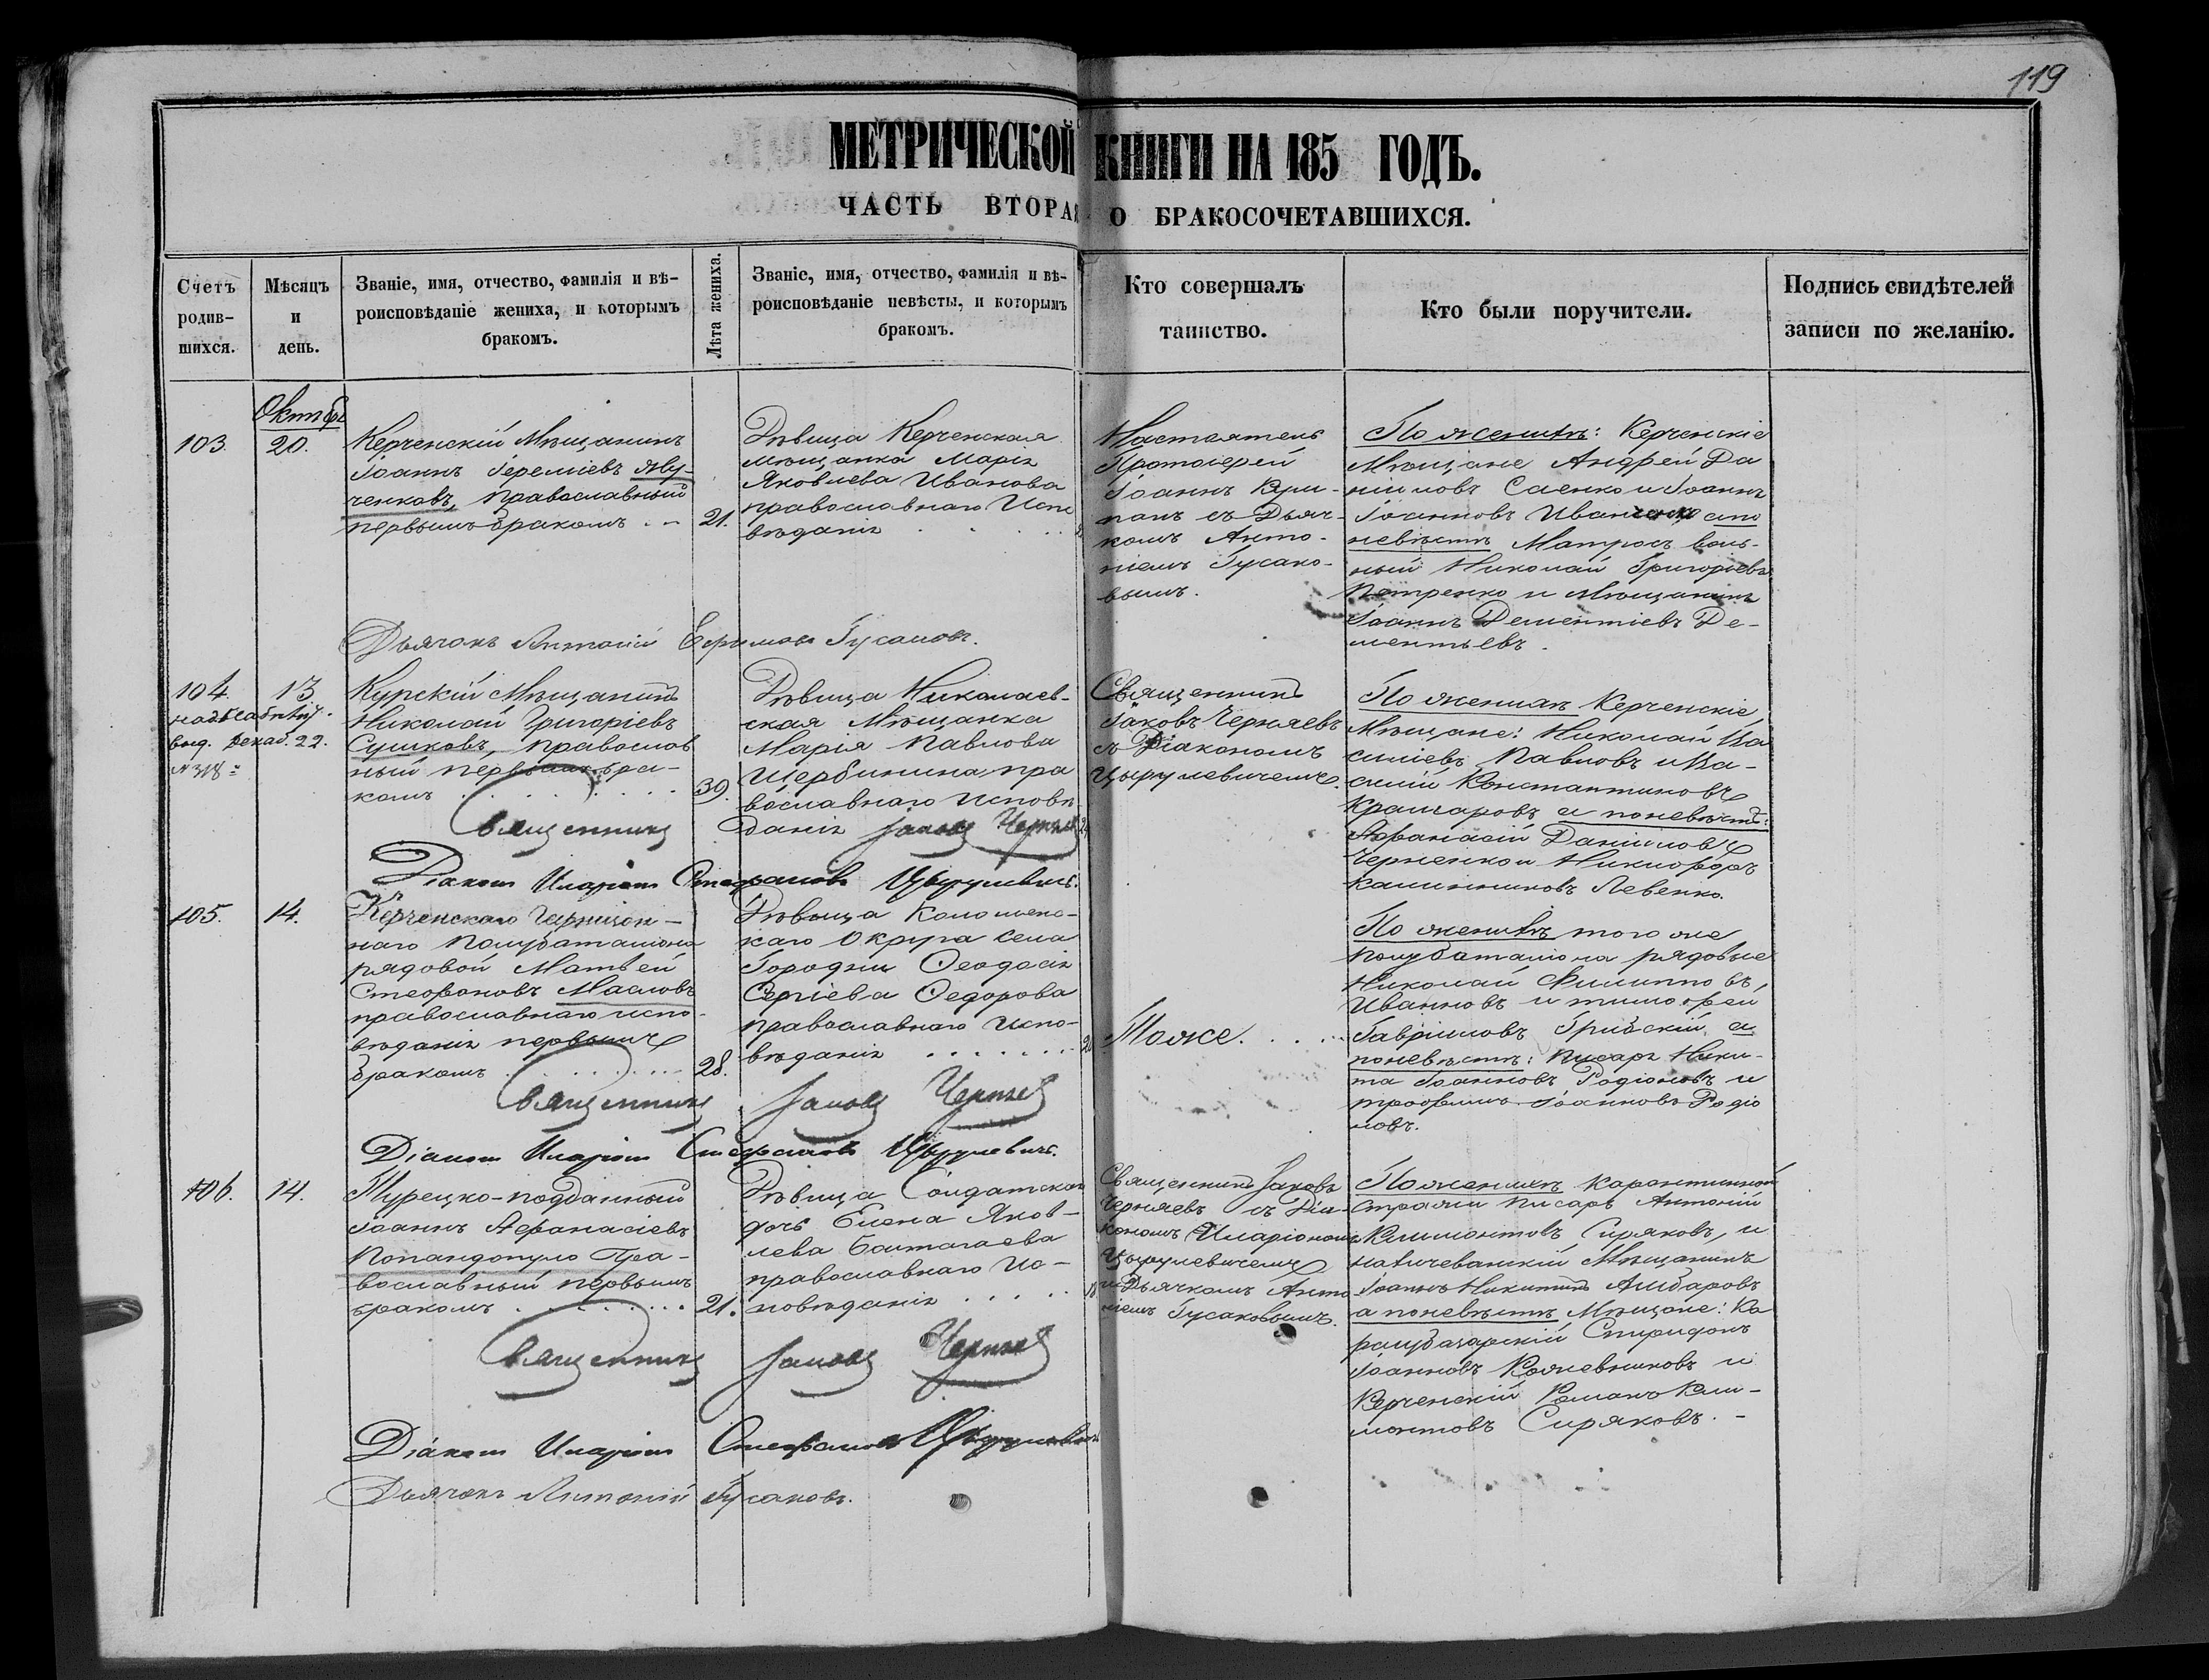 119
МЕТРИЧЕСКОЙ КНИГИ НА 185 ГОДЪ.
ЧАСТЬ ВТОРАЯ О БРАКОСОЧЕТАВШИХСЯ.
Счетъ родив- шихся.
Мѣсяцъ и день.
Званіе, имя, отчество, фамилія и вѣ-
роисповѣданіе жениха, и которымъ
бракомъ.
Лѣта жениха.
Званіе, имя, отчество, фамилія и вѣ-
роисповѣданіе невѣсты, и которымъ
бракомъ.
Кто совершалъ
таинство.
Кто были поручители.
Подпись свидѣтелей
записи по желанію.
Октябр
103. 20.
Керченскій Мѣщанинъ
Іоаннъ Іереміевъ
ченковъ, православный
первымъ бракомъ
21.
Дѣвица Керченская
мѣщанка Марія
Яковлева Иванова
православнаго Испо
вѣданія
Настоятель
Протоіерей
Іоаннъ
съ Дьяч-
комъ Анто-
ніемъ Гусако-
вымъ.
По женихѣ: Керченскіе
Мѣщане Андрей Да
ніиловъ Саенко и Іоаннъ
Іоанновъ а по
невѣстѣ Матросъ воль-
ный Николай Григорьевъ
Петренко и Мѣщанинъ
Іоаннъ Дементіевъ Де-
ментьевъ.
Дьячокъ Антоній Гусаковъ.
104. 13
выд. Декаб. 22.
№ 318
Курскій Мѣщанинъ
Николай Григоріевъ
Сушковъ, православ
ный первымъ бра-
комъ
39.
Дѣвица Николаев-
ская Мѣщанка
Марія Павлова
Щербинина, пра
вославнаго исповѣ
данія
Священникъ
Іаковъ Черняевъ
съ Діакономъ
Цыруlевичемъ.
По женихѣ Керченскіе
Мѣщане: Николай Ва
силіевъ Павловъ и Ва-
силій Константиновъ
а по невѣстѣ:
Афанасій Даніиловъ
Черненко и Никифоръ
Калинниковъ Левенко.
Священникъ Іаковъ Черняевъ
Діаконъ Иларіонъ Стефановъ Цырулевичъ.
105. 14.
Керченскаго Гарнизон-
наго Полубаталіона
рядовой Матвей
Стефановъ Масловъ
православнаго испо-
вѣданія первымъ
бракомъ
28.
Дѣвица Коломенс-
каго Округа села
Городни Феодосія
Сергіева Федорова
православнаго Испо-
вѣданія
Тоже.
По женихѣ того же
полубаталіона рядовые
Николай Филипповъ,
Ивановъ и Тимофей
Гавріиловъ Грибскій а
по невѣстѣ: писарь Ники-
та Іоанновъ Родіоновъ и
Трофимъ Іоанновъ Родіо
новъ.
Священникъ Іаковъ Черняевъ
Діаконъ Иларіонъ Стефановъ Цырулевичъ.
106. 14.
Турецко-подданный
Іоаннъ Афанасіевъ
Попандопуло Пра-
вославный первымъ
бракомъ
21.
Дѣвица Солдатская
дочь Елена Яков-
лева
православнаго Ис-
повѣданія
18
Священникъ Іаковъ
Черняевъ съ Діа-
кономъ Иларіономъ
Цырулевичемъ
и Дьячкомъ Анто
ніемъ Гусаковымъ.
По женихѣ карантинной
стражи писарь Антоній
Климонтовъ Сиряковъ, и
нахичеванскій Мѣщанинъ
Іоаннъ Никитинъ Амбаровъ
а по невѣстѣ Мѣщане: Ка
расубазарскій Спиридонъ
Іоанновъ Кожевниковъ и
Керченскій Романъ Кли-
монтовъ Сиряковъ.
Священникъ Іаковъ Черняевъ
Діаконъ Иларіонъ Стефановъ Цырулевичъ
Дьячокъ Антоній Гусаковъ.